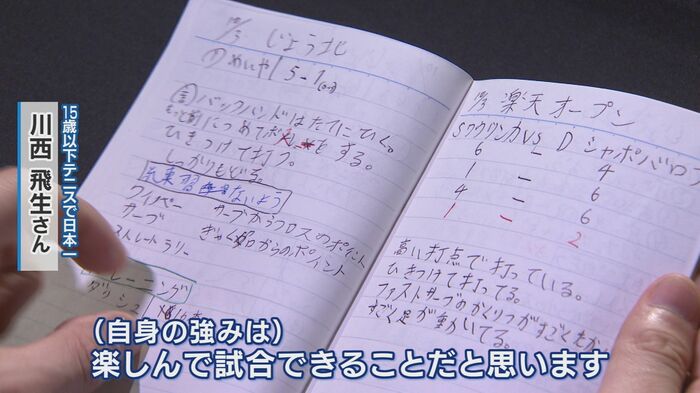 15歳以下テニスで日本一
川西 飛生さん
10/5 じょう北
5-1
バックハンドはたてにひく。
もっと前につめてボレーをする。
ひきつけて打つ。
しっかりもどる
練習ないよう
ワイパー サーブからクロスのポイント
サーブ ぎゃくクロスからのポイント
ストレートラリー
トレーニング
ダッシュ
10/3 楽天オープン
SワウリンカVS Dシャポバロフ
6 - 4
1 - 6
4 - 6
1 - 2
高い打点で打っている。
ひきつけて打ってる。
ファストサーブのかくりつがすごくたか
すごく足が動いてる。
（自身の強みは）
楽しんで試合できることだと思います